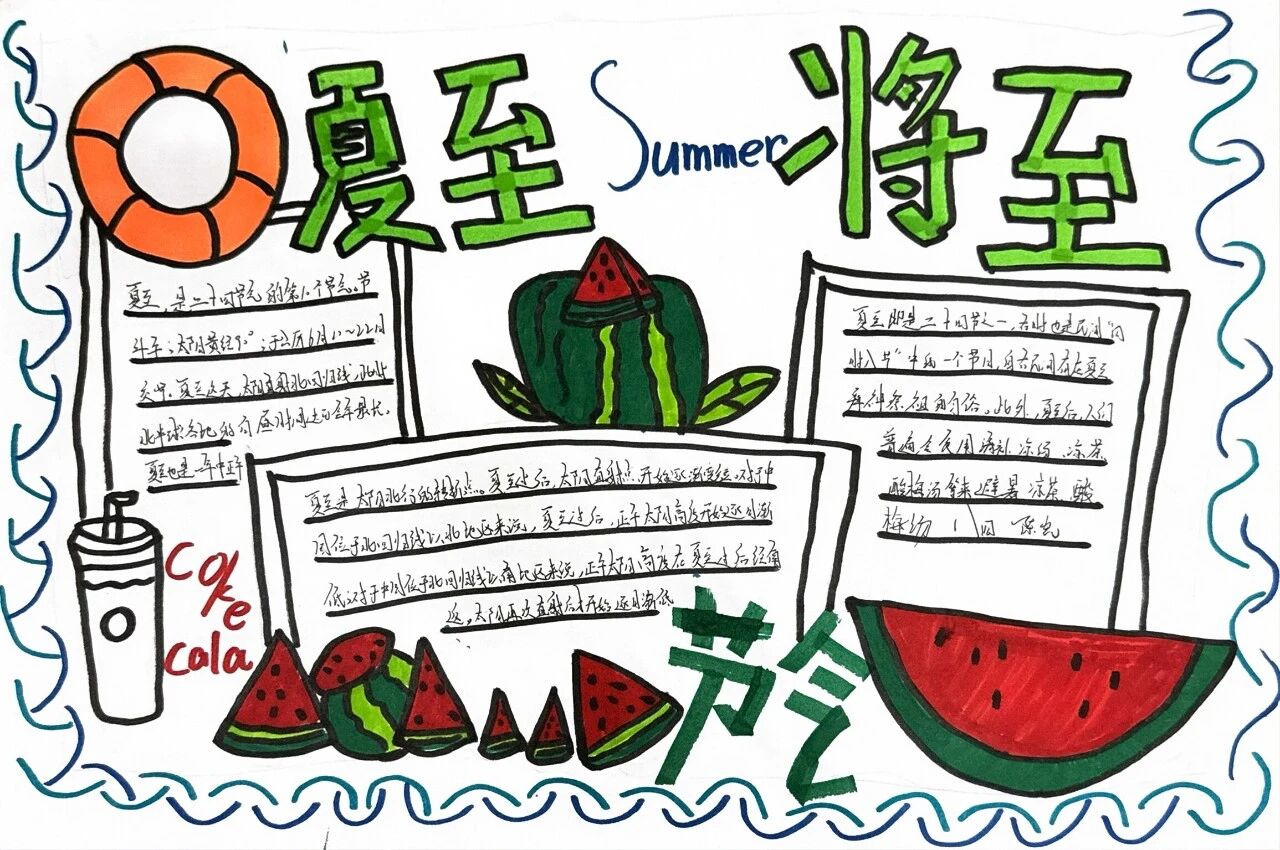 夏至
Summer
将至
夏至,是二十四节气的第10个节气。节
斗 午;太阳黄经90°;于公历6月21~22日
交 。夏至这天,太阳直射北回归线,此时
北半球各地的白昼时间达到全年最长。
夏至也是一年中正午
夏至是太阳北行的转折点。夏至过后,太阳直射点开始逐渐 。对于中
国位于北回归线以北地区来说,夏至过后,正午太阳高度开始逐日渐
低;对于中国位于北回归线以南地区来说,正午太阳高度在夏至过后经南
返,太阳再次直射后才开始逐日渐低
夏至即是二十四节之一,否时也是民间"四
时八节"中的一个节日,自古民间有在夏至
俗。此外,夏至后,人们
普遍会食用 汤、凉茶
酸梅汤 避暑 凉茶 酸
梅汤
Coke
cola
节气